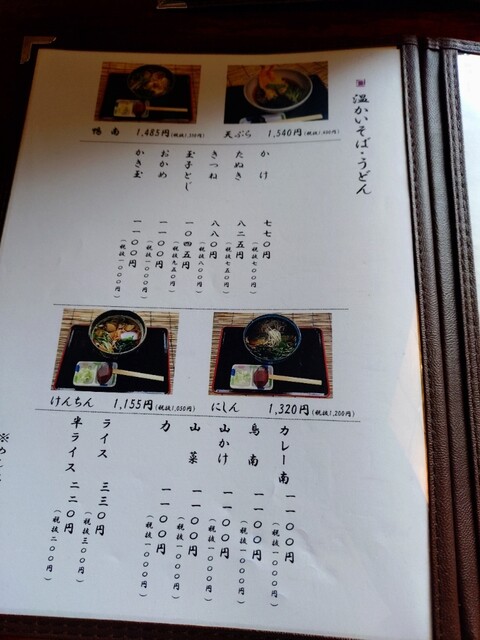 温かいそば・うどん
天ぷら 1,540円(税抜1,400円)
鴨南 1,485円(税抜1,350円)
かけ 七七〇円(税抜七〇〇円)
たぬき 八二五円(税抜七五〇円)
きつね 八八〇円(税抜八〇〇円)
玉子とじ 一〇四五円(税抜九五〇円)
おかめ 一一〇〇円(税抜一〇〇〇円)
かき玉 一一〇〇円(税抜一〇〇〇円)
にしん 1,320円(税抜1,200円)
けんちん 1,155円(税抜1,050円)
カレー南 一一〇〇円(税抜一〇〇〇円)
鳥南 一一〇〇円(税抜一〇〇〇円)
山かけ 一一〇〇円(税抜一〇〇〇円)
山菜 一一〇〇円(税抜一〇〇〇円)
力 一一〇〇円(税抜一〇〇〇円)
ライス 三三〇円(税抜三〇〇円)
半ライス 二二〇円(税抜二〇〇円)